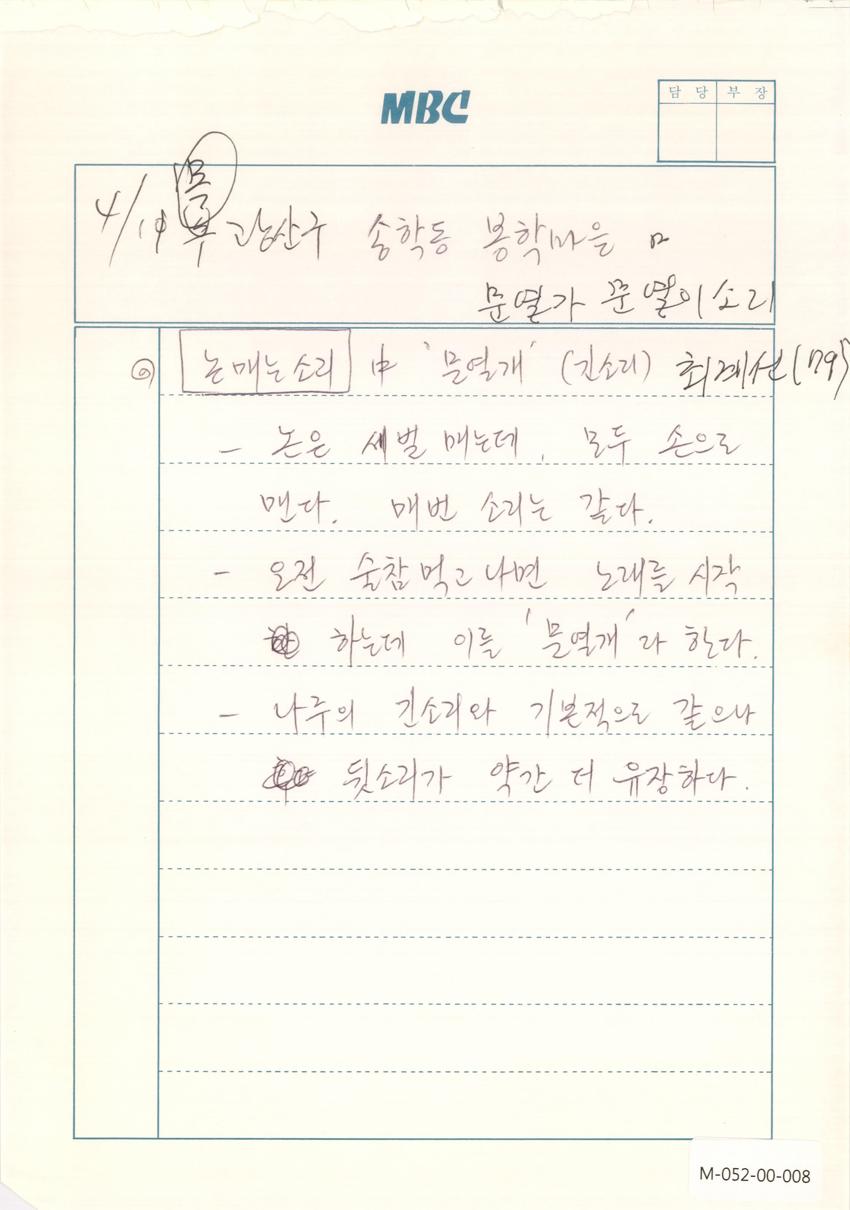 MBC
담당 부장
4/19 광산구 송학동 봉학마을
문열가 문열이소리
논매는소리 中 '문열개' (긴소리) 최계선(79)
- 논은 세벌 매는데, 모두 손으로
맨다. 매번 소리는 같다.
- 오전 술참먹고 나면 노래를 시작
하는데 이를 '문열개'라 한다.
- 나주의 긴소리와 기본적으로 같으나
뒷소리가 약간 더 유장하다.
M-052-00-008